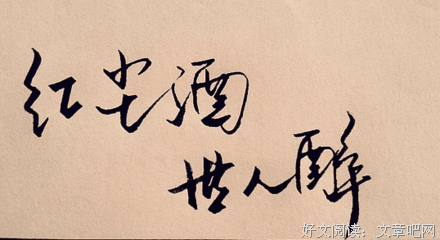 红尘酒
世人醉
好文阅读，文章吧网